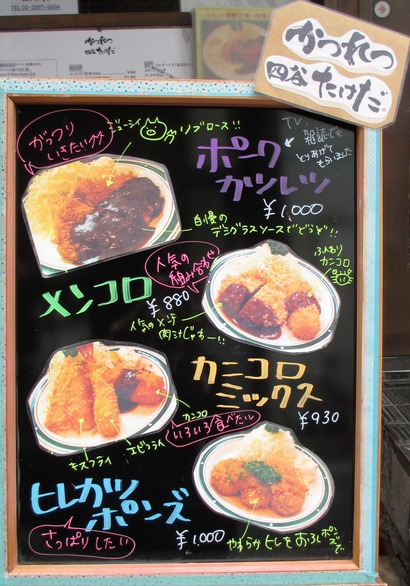 かつれつ
四谷 たけだ
がっつり
いきたいクチ
ジューシィ
リブロース!!
ポーク
カツレツ
¥1,000
TV、
雑誌でも
とりあげて
もらいました
自慢の
デミグラスソースでどうぞ!!
メンコロ
¥880
人気の
組み合せ
ふんわり
カニコロ
人気のメンチ
肉汁じゅわー!!
カニコロ
ミックス
¥930
カニコロ
エビフライ
キスフライ
いろいろ食べたい
ヒレカツ
ポンズ
さっぱりしたい
¥1,000
やわらかヒレをおろしポンズで。